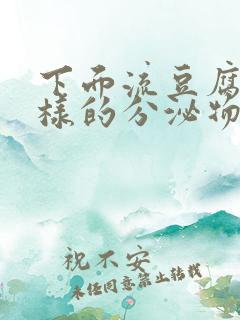 下面流豆腐
样的分泌物
祝不安
未任同意禁止转载